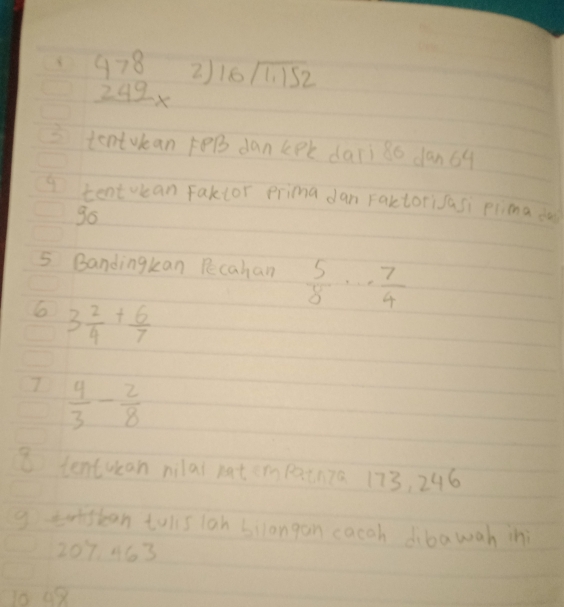 1 478 2) 16 / 1.152
249 x
3 tentukan FPB dan KPK dari 80 dan 64
4 tentukan Faktor Prima dan Faktorisasi Prima dari
90
5 Bandingkan Pecahan 5/8 ... 7/4
6 3 2/4 + 6/7
7 4/3 - 2/8
8 tentukan nilai 173,246
9 tulis lah bilangan cacah dibawah ini
207.463
10 98